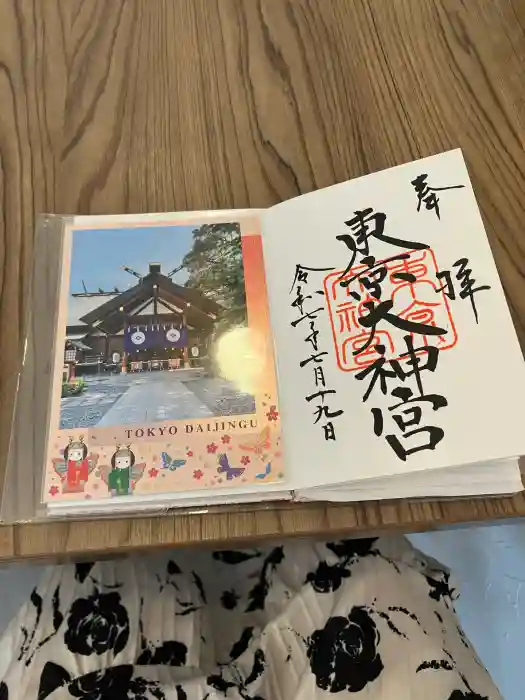 TOKYO DAIJINGU
奉拝
東京大神宮
東京大神宮
令和七年七月十九日